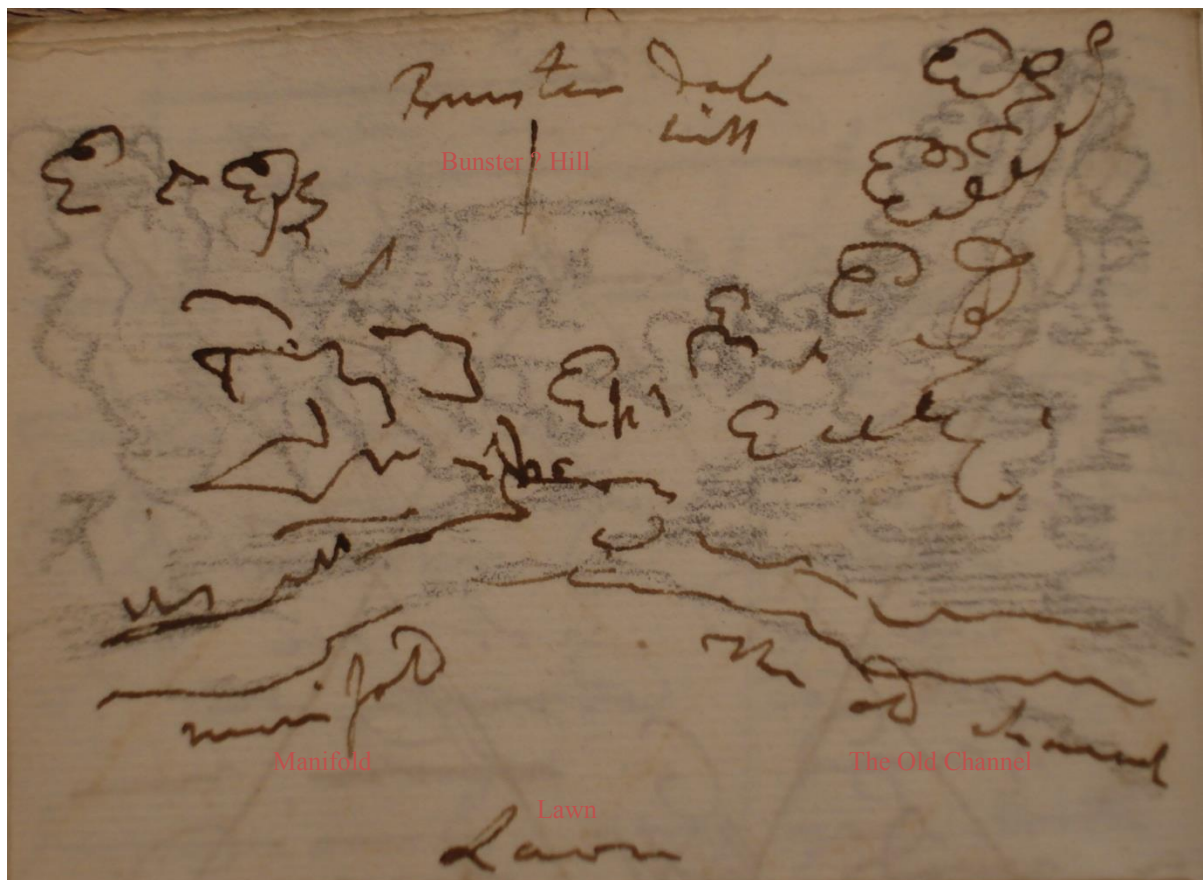 Bunster Dale
hill
Bunster ? Hill
Manifold
The
old Channel
Manifold
The Old Channel
Lawn
Lawn